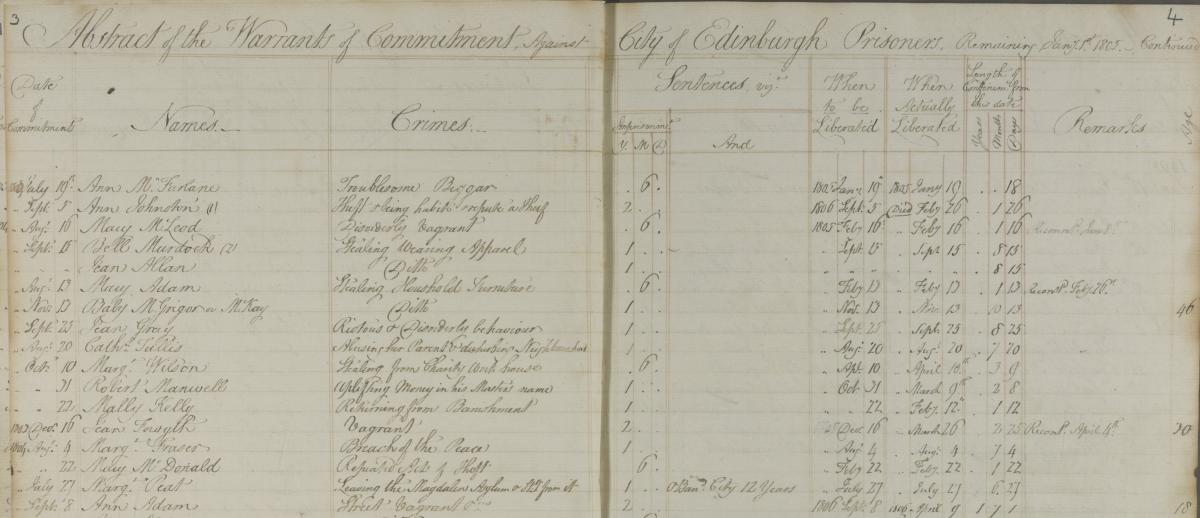 3
4
Abstract of the Warrants of Commitment, Against City of Edinburgh Prisoners, Remaining Jany 1st 1805. Continued
Date of Commitments
Names
Crimes
Sentences, viz.
Imprisonment
Y. M. D.
And
When to be Liberated
When Actually Liberated
Length of Confinemt from this date
Years Months Days
Remarks
Age
July 19 Ann McFarlane Troublesome Beggar . 6 . 1805 Jany 19 1805 Jany 19 . . 18
" Sept 5 Ann Johnston (1) Theft & being habite & repute a thief 2 . . 1806 Sept 5 Died Feby 26 . 1 26
Augt 16 Mary McLeod Disorderly Vagrant . 6 . 1805 Feby 16 " Feby 16 . 1 16
" Sept 15 Bell Murdoch (2) Stealing Wearing Apparel 1 . . " Sept 15 " Sept 15 . 8 15
" " Jean Allan Ditto 1 . . " " " " . 8 15
" Augt 13 Mary Adam Stealing Houshold Furniture . 6 . " Feby 13 " Feby 13 . 1 13 Recomt Feby 26th
" Novr 13 Baby McGrigor or McKay Ditto 1 . . " Novr 13 " Nov 13 . 10 13 46
" Sept 25 Jean Gray Riotous & Disorderly behaviour 1 . . " Sept 25 " Sept 25 . 8 25
" Augt 20 Cathn Tullis Abusing her Parent & disturbing Neighbourhood 1 . . " Augt 20 " Augt 20 . 7 20
" Octr 10 Margt Wilson Stealing from Charity Work house . 6 . " Apl 10 " April 10th . 3 9
" " 31 Robert Manwell Uplifting Money in his Masters name 1 . . " Oct 31 " March 9th . 2 8
" " 22 Mally Kelly Returning from Banishment 1 . . " " 22 " Feby 12 . 1 12
1803 Decr 16 Jean Forsyth Vagrant 2 . . Decr 16 " March 26 . 2 25 Recomt April 4th 30
1804 Augt 4 Margt Fraser Breach of the Peace 1 . . " Augt 4 " Augt 4 . 7 4
" " 22 Mary McDonald Repeated Acts of Theft . 6 . " Feby 22 " Feby 22 . 1 22
" July 27 Margt Peat Leaving the Magdalen Asylum & Theft from it 1 . . & Band City 12 Years " July 27 " July 27 . 6 27
" Sept 8 Ann Adam Street Vagrant &c 2 . . 1806 Sept 8 1806 April 9 1 7 1 18